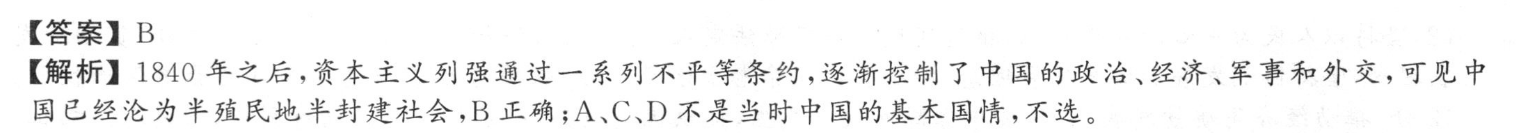 【答案】B
【解析】1840 年之后,资本主义列强通过一系列不平等条约,逐渐控制了中国的政治、经济、军事和外交,可见中
国已经沦为半殖民地半封建社会,B 正确;A、C、D 不是当时中国的基本国情,不选。